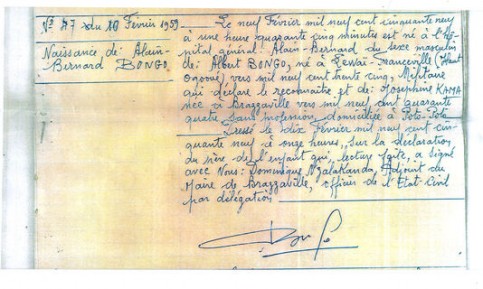 N° 47 du 10 Février 1959
Naissance de: Alain-
Bernard BONGO
Le neuf Février mil neuf cent cinquante neuf
à une heure quarante cinq minutes est né à l'hô-
pital général: Alain-Bernard du sexe masculin
de: Albert BONGO, né à Lewai-Franceville (Haut
Ogooué) vers mil neuf cent trente cinq, Militaire
qui déclare le reconnaître et de: Josephine KAMA
née à Brazzaville vers mil neuf cent quarante
quatre sans profession, domiciliée à Poto-Poto
Dressé le dix Février mil neuf cent cin-
quante neuf à onze heures, sur la déclaration
du père de l'enfant qui, lecture faite, a signé
avec Nous: Dominique Nzalakanda, Adjoint du
Maire de Brazzaville, officier de l'Etat-Civil
par délégation